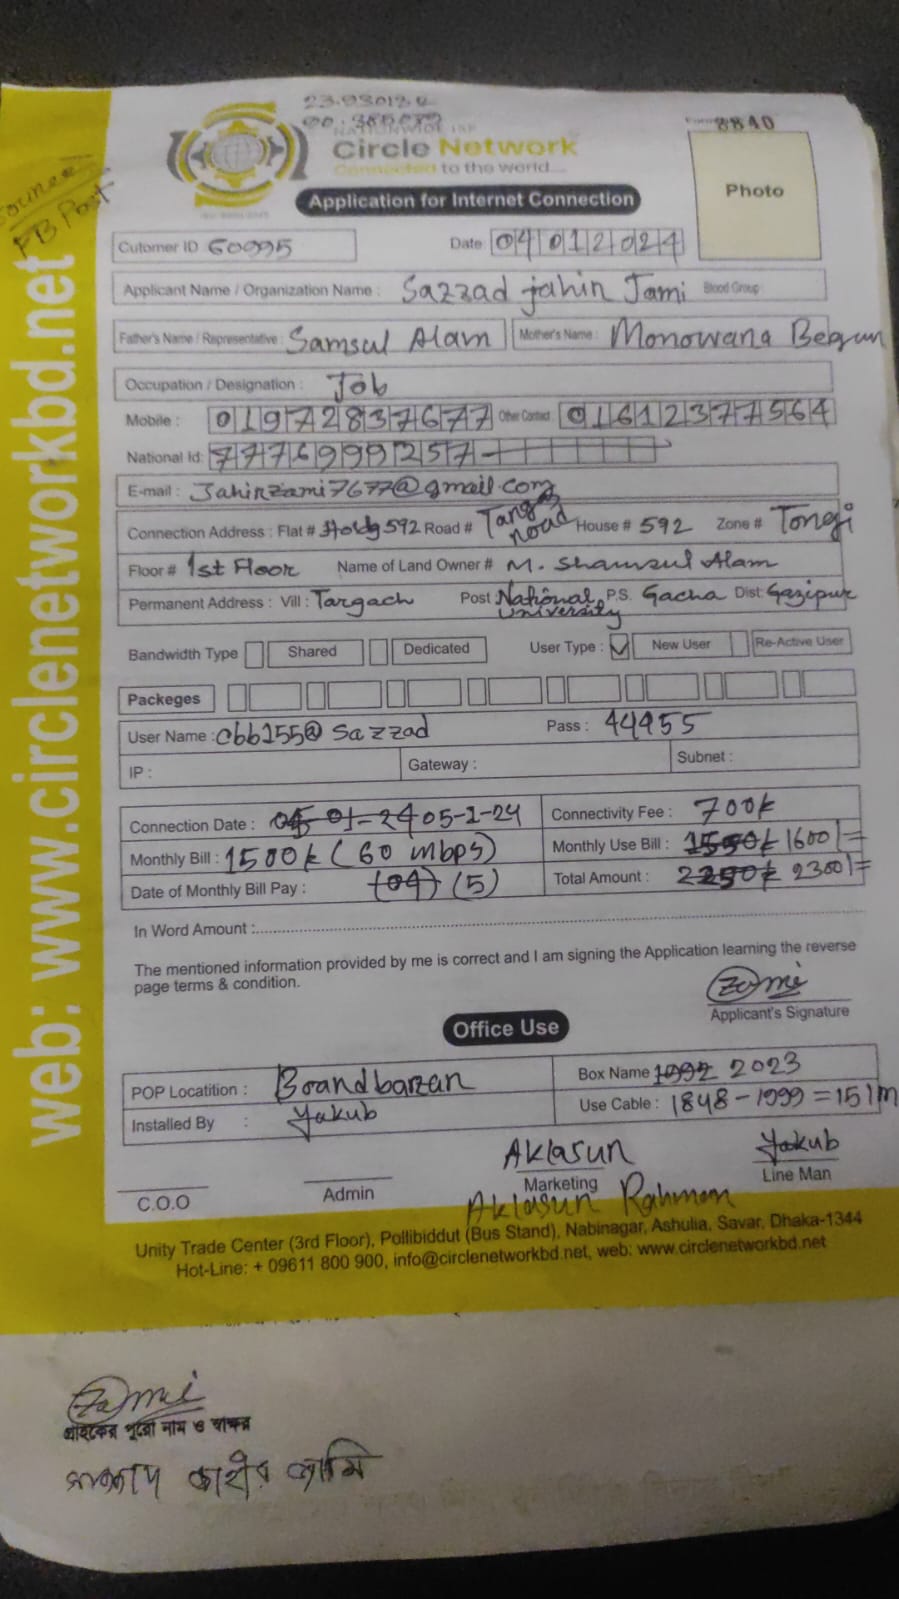 23.93012
00.
NATIONWIDE ISP
Circle Network
Connected to the world....
8840
Photo
Application for Internet Connection
PB Post
web: www.circlenetworkbd.net
Cutomer ID 60995 Date: 04012024
Applicant Name / Organization Name : Sazzad jahin Jami Blood Group
Father's Name / Representative : Samsul Alam Mother's Name : Monowana Begum
Occupation / Designation : Job
Mobile : 01972837677 Other Contact 01612377564
National Id: 7776999257
E-mail : Jahinzami7677@gmail.com
Connection Address : Flat # Holdg 592 Road # Targ road House # 592 Zone # Tongi
Floor # 1st Floor Name of Land Owner # M. Shamsul Alam
Permanent Address : Vill : Targach Post National University P.S. Gacha Dist: Gazipur
Bandwidth Type Shared Dedicated User Type : ✓ New User Re-Active User
Packeges
User Name : cbb155@sazzad Pass : 44955
IP : Gateway : Subnet :
Connection Date : 05-01-24 05-1-24 Connectivity Fee : 700k
Monthly Bill : 1500k (60 mbps) Monthly Use Bill : 1550k 1600/=
Date of Monthly Bill Pay : (04) (5) Total Amount : 2250k 2300/=
In Word Amount :
The mentioned information provided by me is correct and I am signing the Application learning the reverse
page terms & condition.
Zami
Applicant's Signature
Office Use
POP Locatition : Boardbarzan Box Name 1992 2023
Installed By : Yakub Use Cable : 1848-1999=151m
Aklasun Yakub
C.O.O Admin Marketing Line Man
Aklasun Rahman
Unity Trade Center (3rd Floor), Pollibiddut (Bus Stand), Nabinagar, Ashulia, Savar, Dhaka-1344
Hot-Line: + 09611 800 900, info@circlenetworkbd.net, web: www.circlenetworkbd.net
Zami
গ্রাহকের পুরো নাম ও স্বাক্ষর
সাজ্জাদ জাহীন জামি